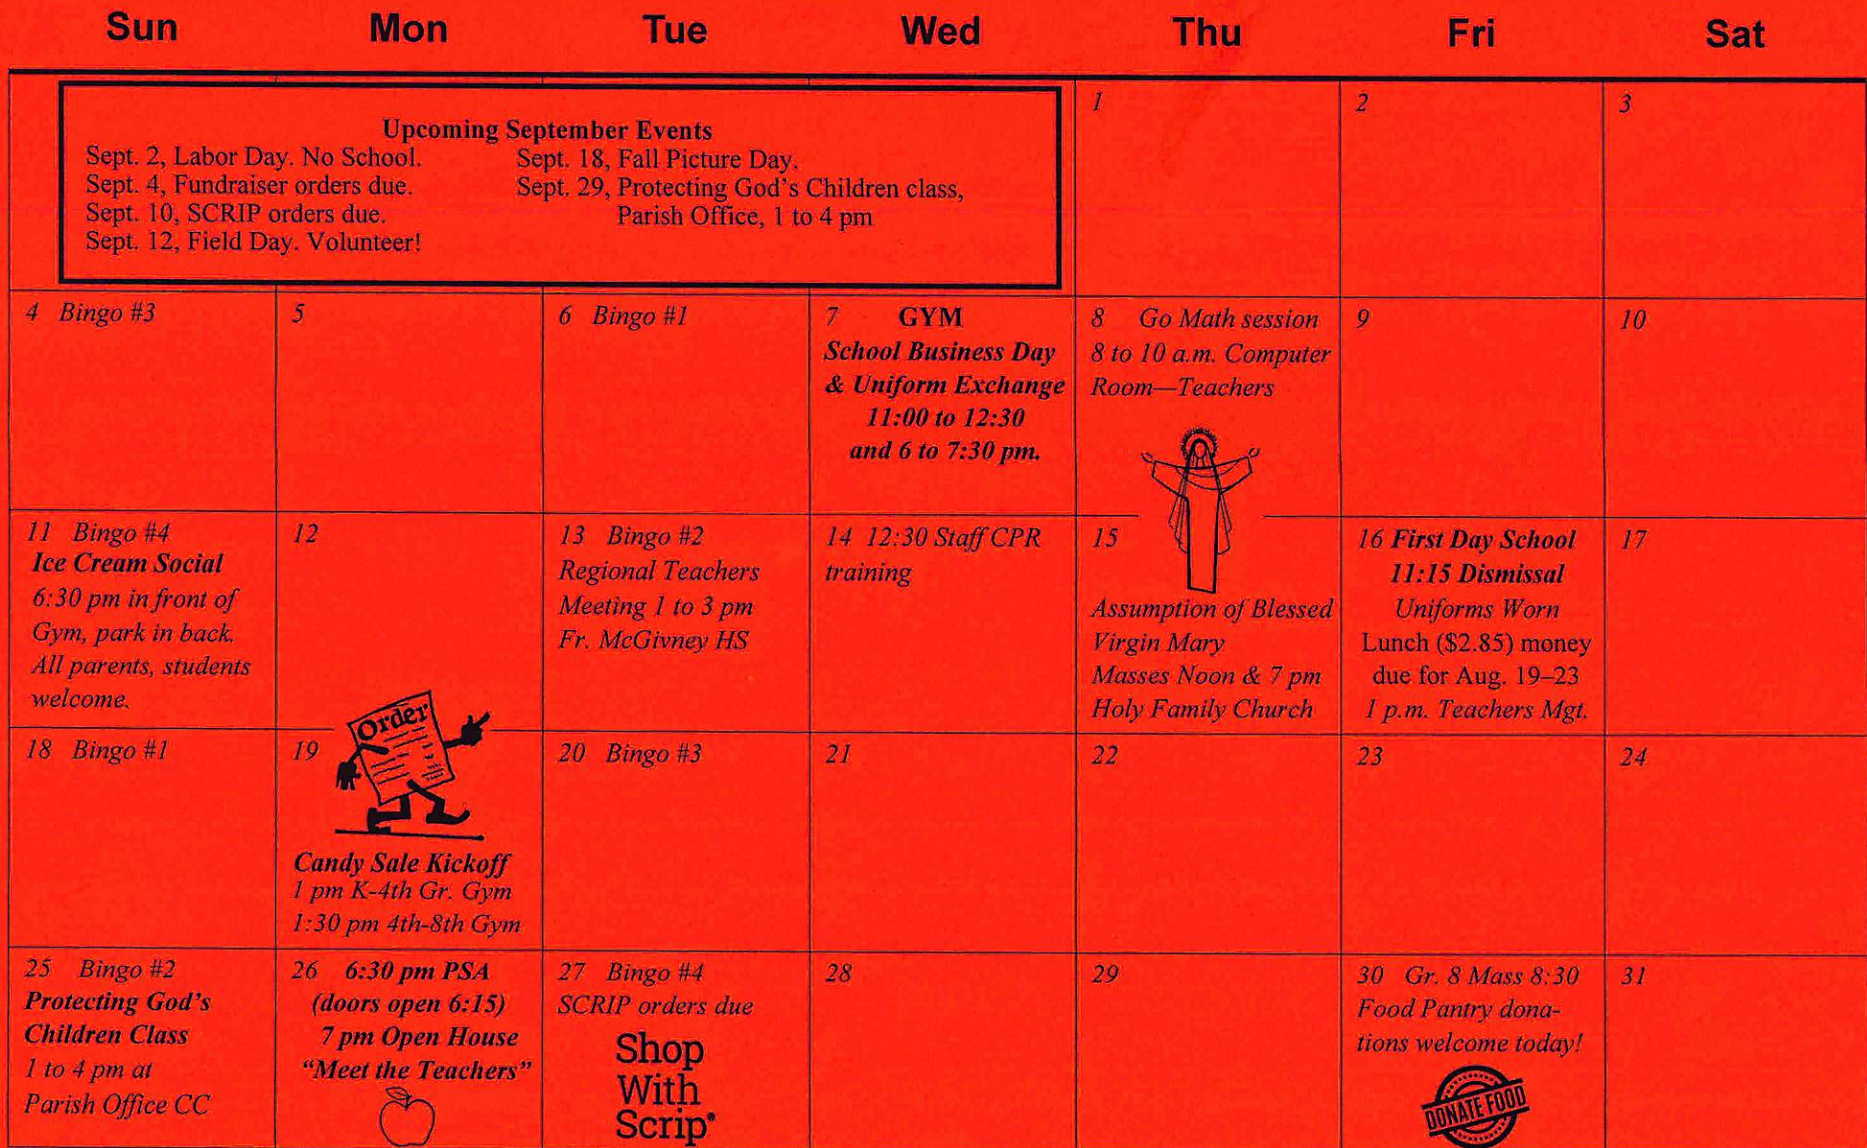 Sun Mon Tue Wed Thu Fri Sat
Upcoming September Events
Sept. 2, Labor Day. No School.
Sept. 4, Fundraiser orders due.
Sept. 10, SCRIP orders due.
Sept. 12, Field Day. Volunteer!
Sept. 18, Fall Picture Day.
Sept. 29, Protecting God's Children class,
Parish Office, 1 to 4 pm
1
2
3
4 Bingo #3
5
6 Bingo #1
7 GYM
School Business Day
& Uniform Exchange
11:00 to 12:30
and 6 to 7:30 pm.
8 Go Math session
8 to 10 a.m. Computer
Room—Teachers
9
10
11 Bingo #4
Ice Cream Social
6:30 pm in front of
Gym, park in back.
All parents, students
welcome.
12
13 Bingo #2
Regional Teachers
Meeting 1 to 3 pm
Fr. McGivney HS
14 12:30 Staff CPR
training
15
Assumption of Blessed
Virgin Mary
Masses Noon & 7 pm
Holy Family Church
16 First Day School
11:15 Dismissal
Uniforms Worn
Lunch ($2.85) money
due for Aug. 19–23
1 p.m. Teachers Mgt.
17
18 Bingo #1
19
Order
Candy Sale Kickoff
1 pm K-4th Gr. Gym
1:30 pm 4th-8th Gym
20 Bingo #3
21
22
23
24
25 Bingo #2
Protecting God's
Children Class
1 to 4 pm at
Parish Office CC
26 6:30 pm PSA
(doors open 6:15)
7 pm Open House
"Meet the Teachers"
27 Bingo #4
SCRIP orders due
Shop
With
Scrip®
28
29
30 Gr. 8 Mass 8:30
Food Pantry dona-
tions welcome today!
DONATE FOOD
31